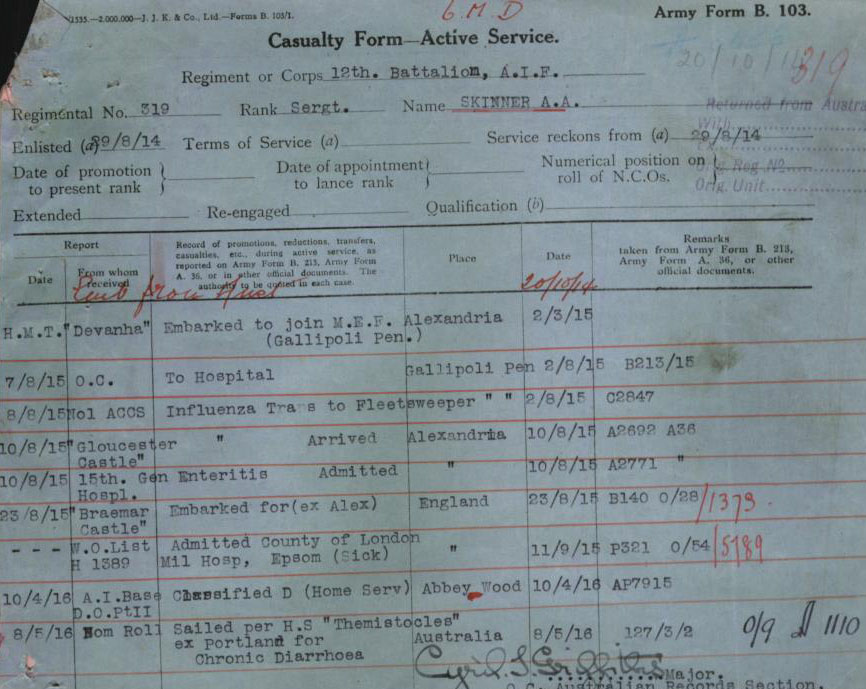 1535.—2,000,000—J. J. K. & Co., Ltd.—Forms B. 103/1.
G.M.D
Army Form B. 103.
Casualty Form—Active Service.
20/10/14
319
Regiment or Corps 12th. Battalion, A.I.F.
Regimental No. 319 Rank Sergt. Name SKINNER A.A.
Returned from Austra
With
Enlisted (a) 29/8/14 Terms of Service (a) Service reckons from (a) 29/8/14
Date of promotion to present rank } Date of appointment to lance rank } Numerical position on roll of N.C.Os. }
Orig Reg No
Orig. Unit
Extended Re-engaged Qualification (b)
Report
Date
From whom received
Record of promotions, reductions, transfers,
casualties, etc., during active service, as
reported on Army Form B. 213, Army Form
A. 36, or in other official documents. The
authority to be quoted in each case.
Place
Date
Remarks
taken from Army Form B. 213,
Army Form A. 36, or other
official documents.
Emb from 20/10/14
H.M.T. "Devanha" Embarked to join M.E.F. Alexandria 2/3/15
(Gallipoli Pen.)
7/8/15 O.C. To Hospital Gallipoli Pen 2/8/15 B213/15
8/8/15 No1 ACCS Influenza Trans to Fleetsweeper " " 2/8/15 C2847
10/8/15 "Gloucester Castle" " Arrived Alexandria 10/8/15 A2692 A36
10/8/15 15th. Gen Hospl. Enteritis Admitted " 10/8/15 A2771 "
23/8/15 "Braemar Castle" Embarked for(ex Alex) England 23/8/15 B140 0/28/1373.
- - - W.O.List Admitted County of London
H 1389 Mil Hosp, Epsom (Sick) " 11/9/15 P321 0/54/5789
10/4/16 A.I.Base Classified D (Home Serv) Abbey Wood 10/4/16 AP7915
D.O.PtII
8/5/16 Nom Roll Sailed per H.S "Themistocles" Australia 8/5/16 127/3/2 0/9 1110
ex Portland for
Chronic Diarrhoea
Cyril S. Griffiths
Major.
O.C. Australian Records Section.